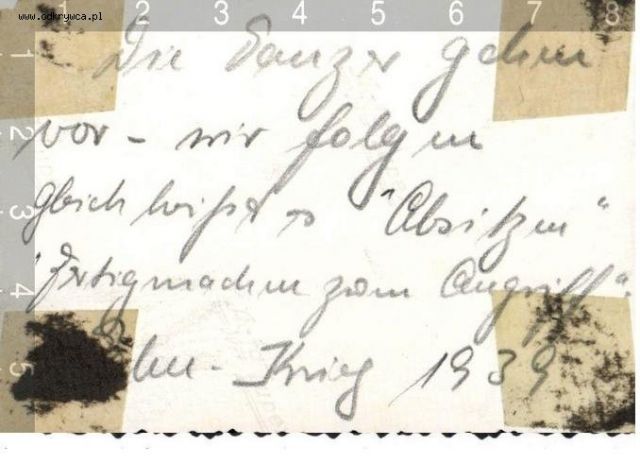 www.odkrywca.pl
1 2 3 4 5 6 7 8
Die Panzer gehen
vor - wir folgen
gleich heißt es "Absitzen"
"Fertigmachen zum Angriff".
Krieg 1939
1
2
3
4
5